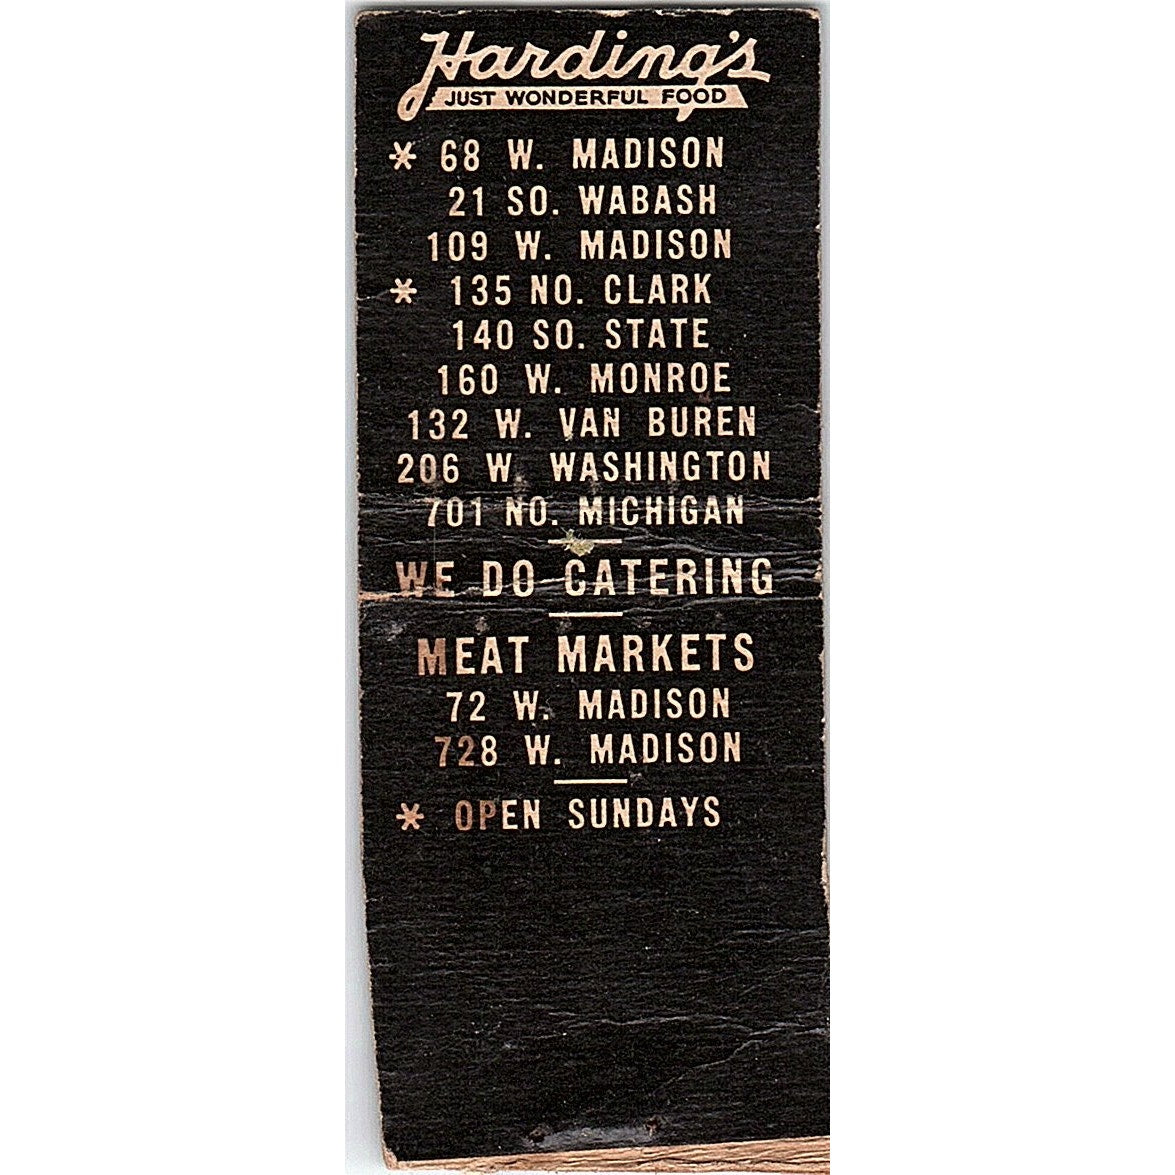 Harding's
JUST WONDERFUL FOOD
* 68 W. MADISON
21 SO. WABASH
109 W. MADISON
* 135 NO. CLARK
140 SO. STATE
160 W. MONROE
132 W. VAN BUREN
206 W WASHINGTON
701 NO. MICHIGAN
WE DO CATERING
MEAT MARKETS
72 W. MADISON
728 W. MADISON
* OPEN SUNDAYS